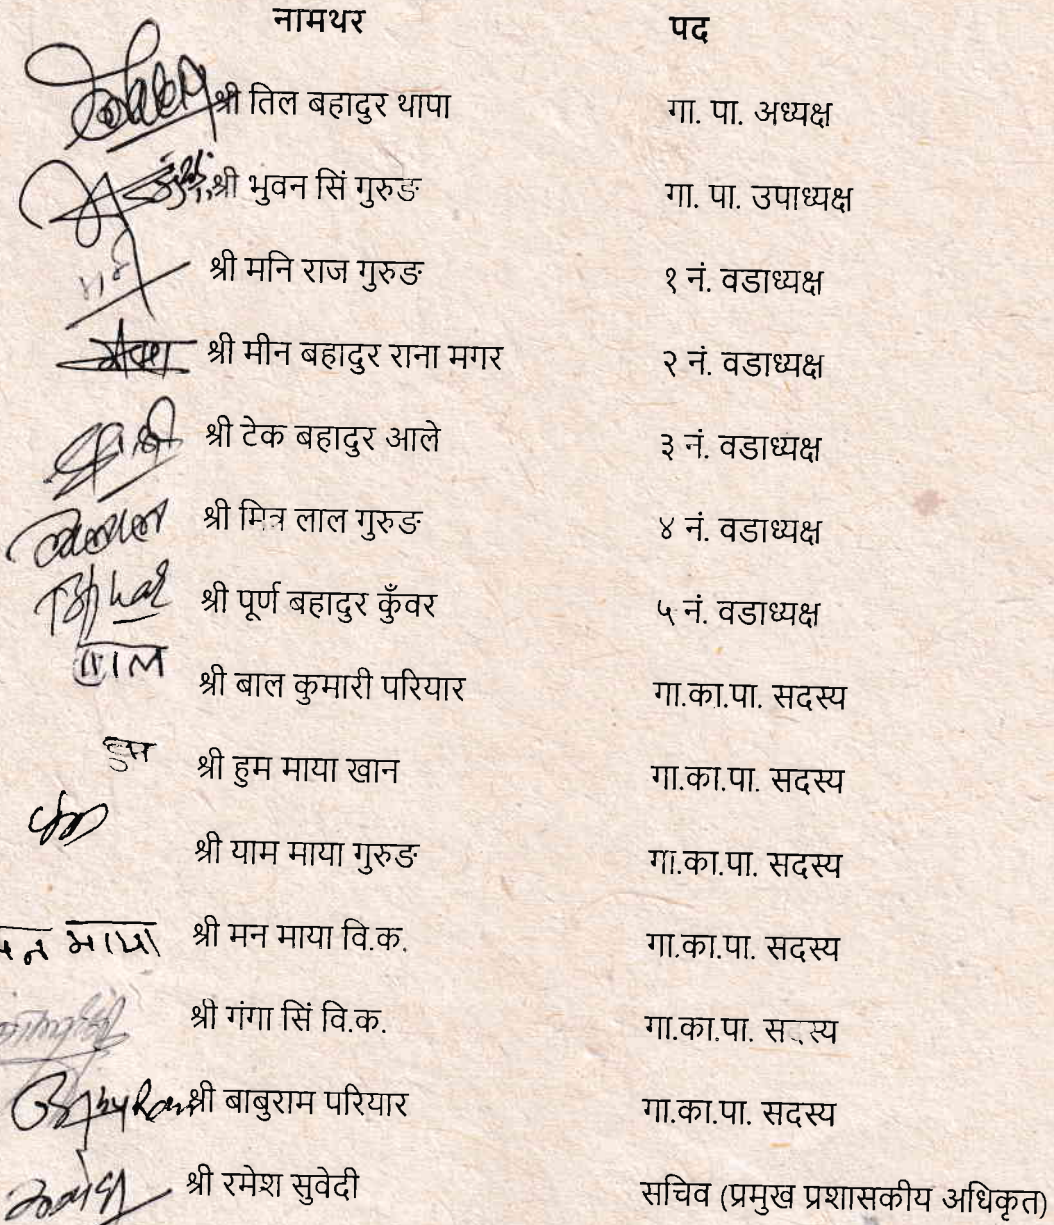 नामथर पद
श्री तिल बहादुर थापा गा. पा. अध्यक्ष
श्री भुवन सिं गुरुङ गा. पा. उपाध्यक्ष
श्री मनि राज गुरुङ १ नं. वडाध्यक्ष
श्री मीन बहादुर राना मगर २ नं. वडाध्यक्ष
श्री टेक बहादुर आले ३ नं. वडाध्यक्ष
श्री मित्र लाल गुरुङ ४ नं. वडाध्यक्ष
श्री पूर्ण बहादुर कुँवर ५ नं. वडाध्यक्ष
श्री बाल कुमारी परियार गा.का.पा. सदस्य
हुम श्री हुम माया खान गा.का.पा. सदस्य
श्री याम माया गुरुङ गा.का.पा. सदस्य
मन माया श्री मन माया वि.क. गा.का.पा. सदस्य
श्री गंगा सिं वि.क. गा.का.पा. सदस्य
श्री बाबुराम परियार गा.का.पा. सदस्य
श्री रमेश सुवेदी सचिव (प्रमुख प्रशासकीय अधिकृत)